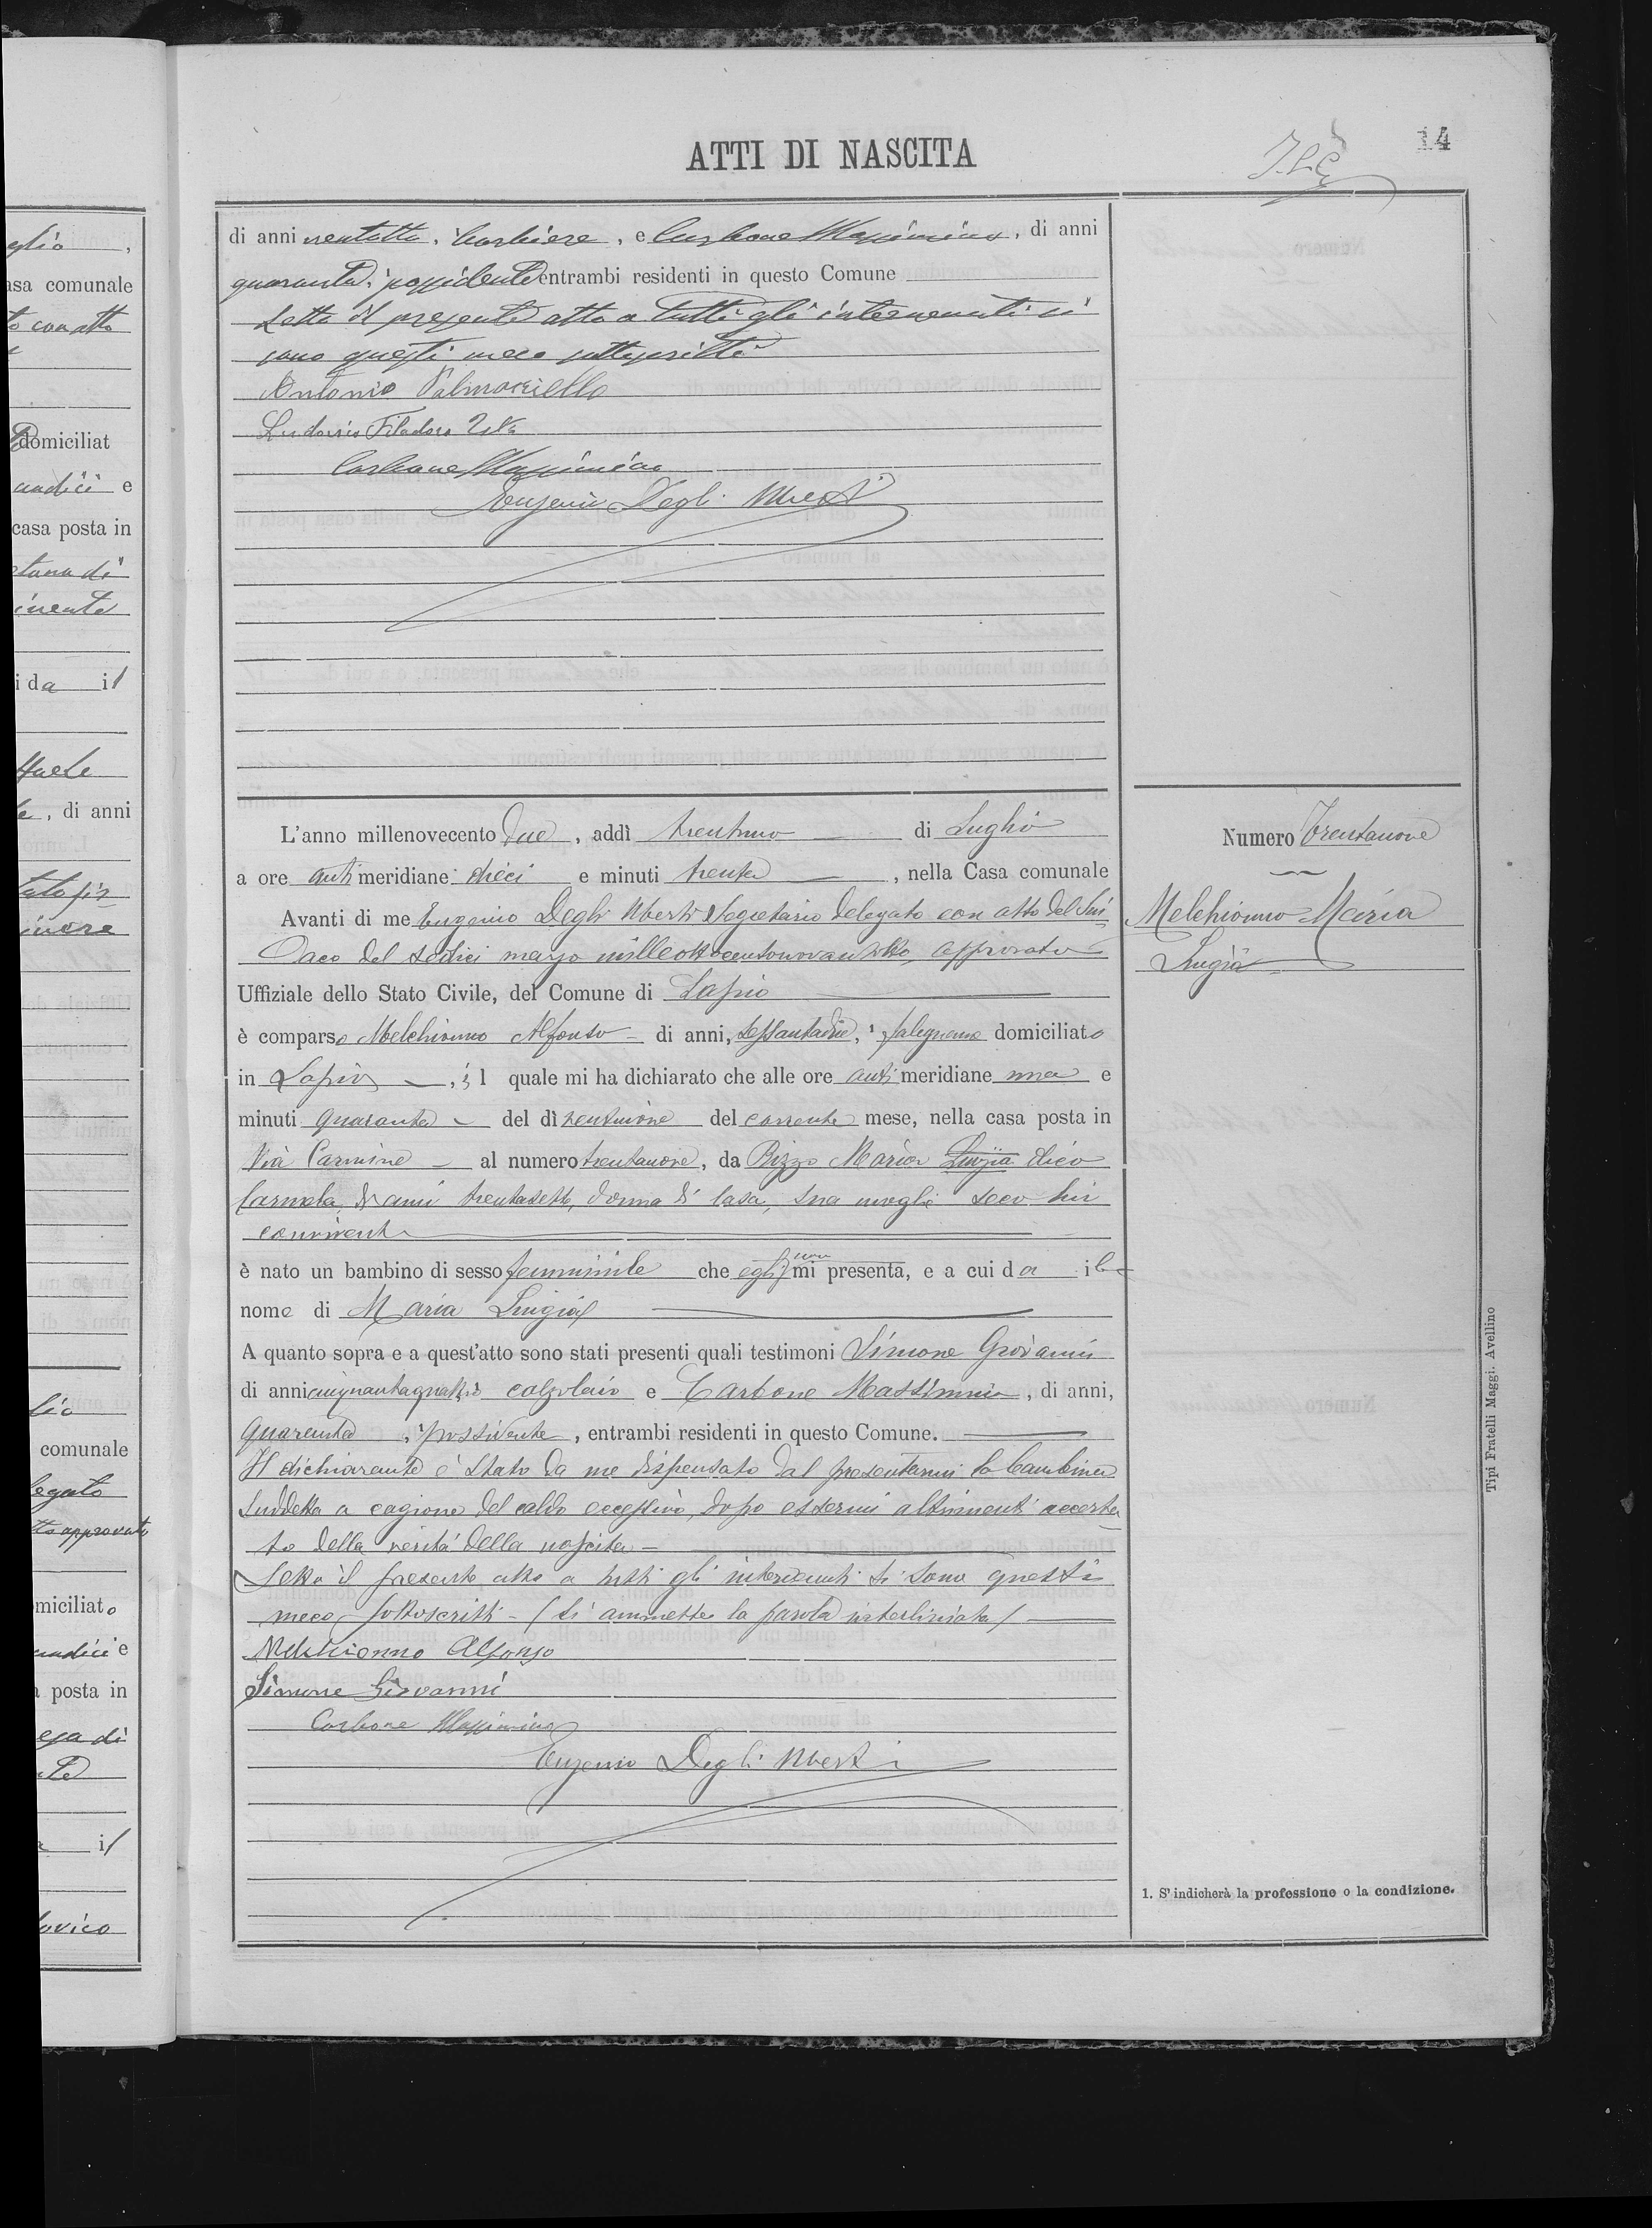 glio,
asa comunale
to con atto
domiciliat
undici e
casa posta in
i da il
, di anni
comunale
legato
tto approvato
miciliato
undici e
a posta in
il
ATTI DI NASCITA
14
di anni trentotto, barbiere, e Carbone Massimino, di anni
quaranta, possidente entrambi residenti in questo Comune
Letto il presente atto a tutti gli intervenuti si
sono questi meco sottoscritti
Antonio Palmariello
Ludovico Filadoro
Carbone Massimino
Eugenio Degli Uberti
L'anno millenovecento due, addì trentuno di Luglio
a ore anti meridiane dieci e minuti trenta, nella Casa comunale
Avanti di me Eugenio Degli Uberti Segretario delegato con atto del Sin
daco del sedici marzo milleottocentonovantotto, approvato
Uffiziale dello Stato Civile, del Comune di Lapio
è comparso Melchionno Alfonso di anni, sessantadue, 1 falegname domiciliato
in Lapio, il quale mi ha dichiarato che alle ore anti meridiane una e
minuti quaranta del dì ventinove del corrente mese, nella casa posta in
Via Carmine al numero trentanove, da Rizzo Maria Luigia dico
Carmela, di anni trentasette, donna di casa, sua moglie seco lui
convivente
è nato un bambino di sesso femminile che egli non mi presenta, e a cui da il
nome di Maria Luigia
A quanto sopra e a quest'atto sono stati presenti quali testimoni Simone Giovanni
di anni cinquantaquattro calzolaio e Carbone Massimino, di anni,
quaranta, 1 possidente, entrambi residenti in questo Comune.
Il dichiarante è stato da me dispensato dal presentarmi la bambina
suddetta a cagione del caldo eccessivo, dopo essermi altrimenti accerta
to della verità della nascita
Letto il presente atto a tutti gli intervenuti si sono questi
meco sottoscritti - (si ammette la parola interlineata)
Melchionno Alfonso
Simone Giovanni
Carbone Massimino
Eugenio Degli Uberti
Numero Trentanove
Melchionno Maria
Luigia
1. S'indicherà la professione o la condizione.
Tipi Fratelli Maggi. Avellino